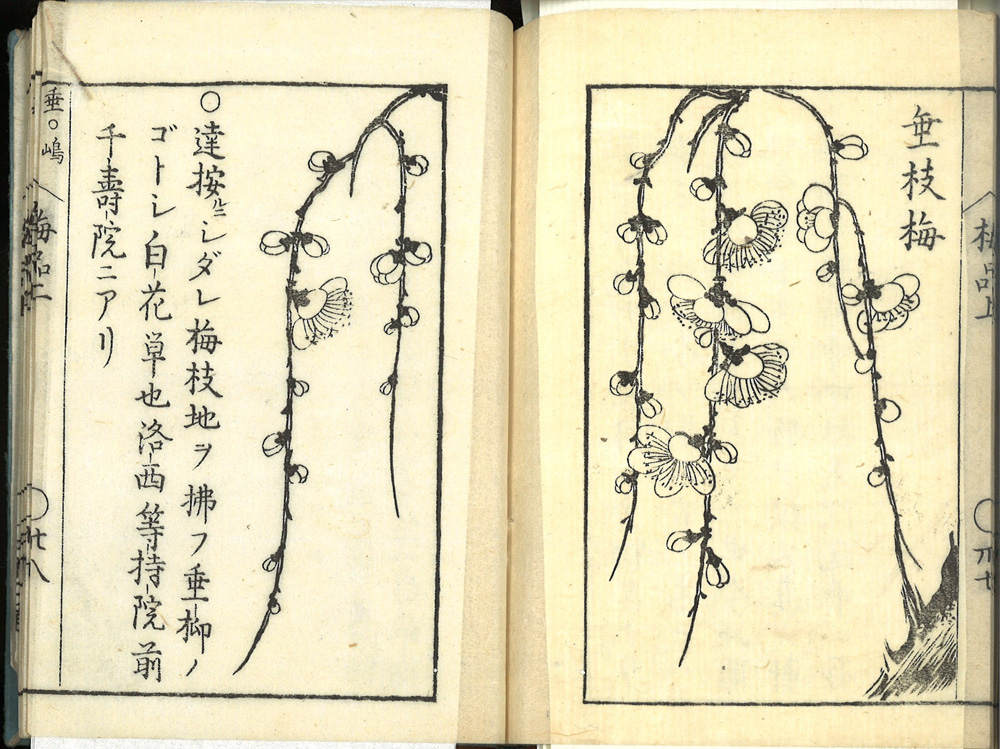 垂枝梅
○達按ルニシダレ梅枝地ヲ拂フ垂柳ノ
ゴトシ白花単也洛西等持院前
千壽院ニアリ
垂○嶋
梅品二
○廿八